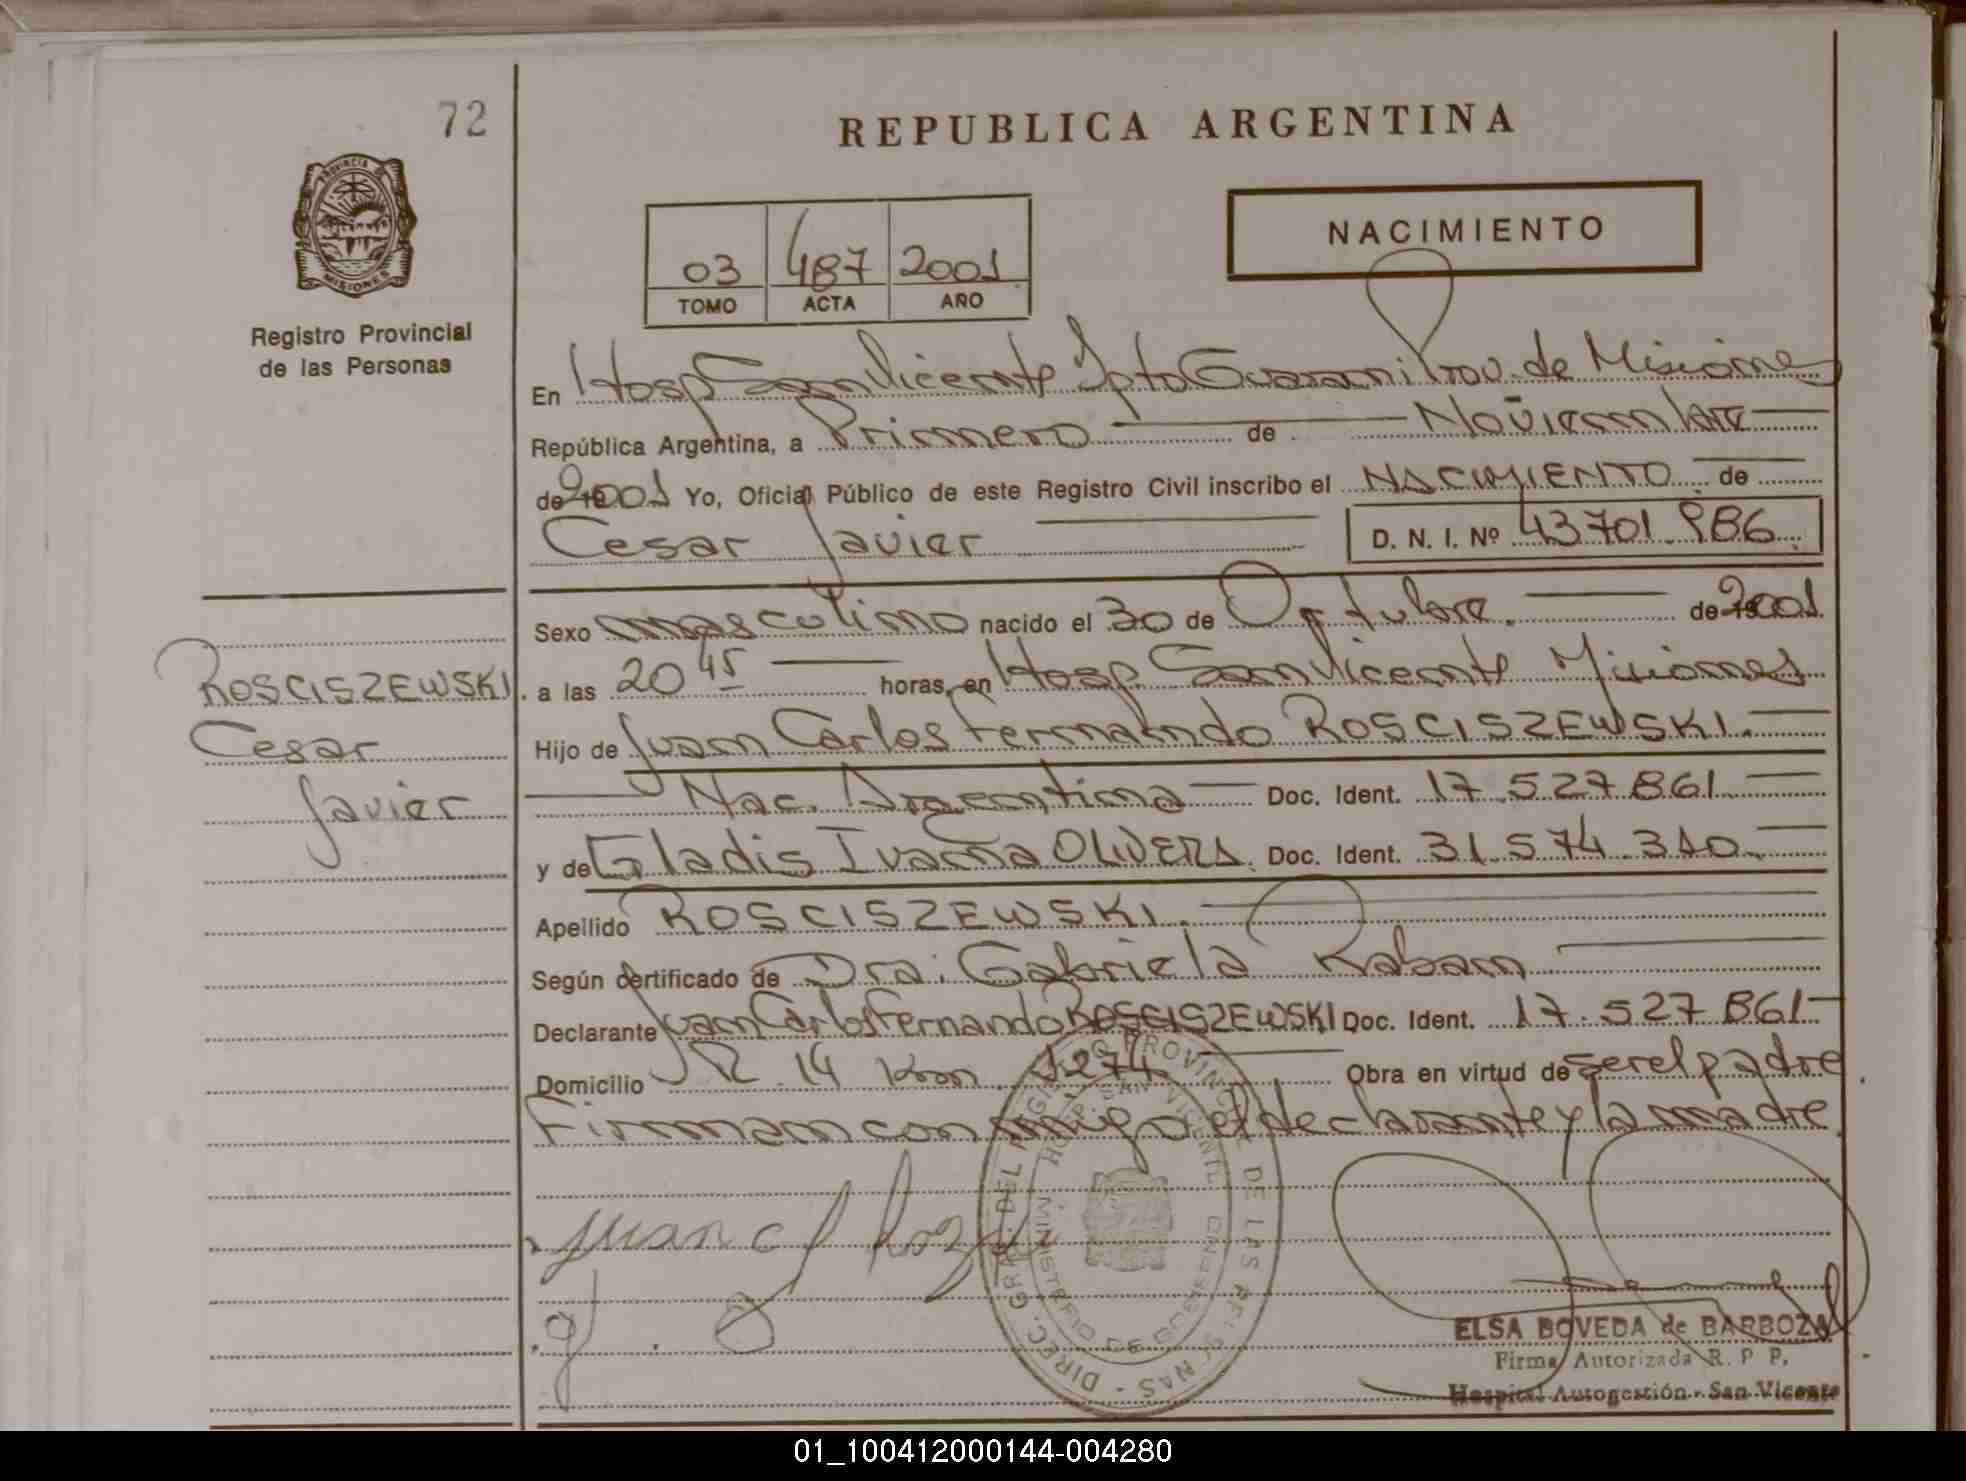 72
REPUBLICA ARGENTINA
PROVINCIA DE
MISIONES
Registro Provincial
de las Personas
NACIMIENTO
03 487 2001
TOMO ACTA AÑO
En Hosp San Vicente Dpto Guaraní Prov. de Misiones
República Argentina, a Primero de Noviembre
de 2001 Yo, Oficial Público de este Registro Civil inscribo el NACIMIENTO de
Cesar Javier D. N. I. Nº 43701.986
Sexo masculino nacido el 30 de Octubre de 2001
ROSCISZEWSKI
Cesar
Javier
a las 20 45 horas, en Hosp San Vicente Misiones
Hijo de Juan Carlos Fernando ROSCISZEWSKI.
Nac. Argentina Doc. Ident. 17.527.861
y de Gladis Ivana OLIVERA Doc. Ident. 31.574.310.
Apellido ROSCISZEWSKI.
Según certificado de Dra. Gabriela Raban
Declarante Juan Carlos Fernando ROSCISZEWSKI Doc. Ident. 17.527.861
Domicilio R. 14 Km 1274 Obra en virtud de ser el padre
Firman conmigo el declarante y la madre
Juan C
DIREC. GRAL. DEL REGISTRO PROVINCIAL DE LAS PERSONAS
HOSP. SAN VICENTE
MINISTERIO DE GOBIERNO
ELSA BOVEDA de BARBOZA
Firma Autorizada R. P. P.
Hospital Autogestión - San Vicente
01_100412000144-004280